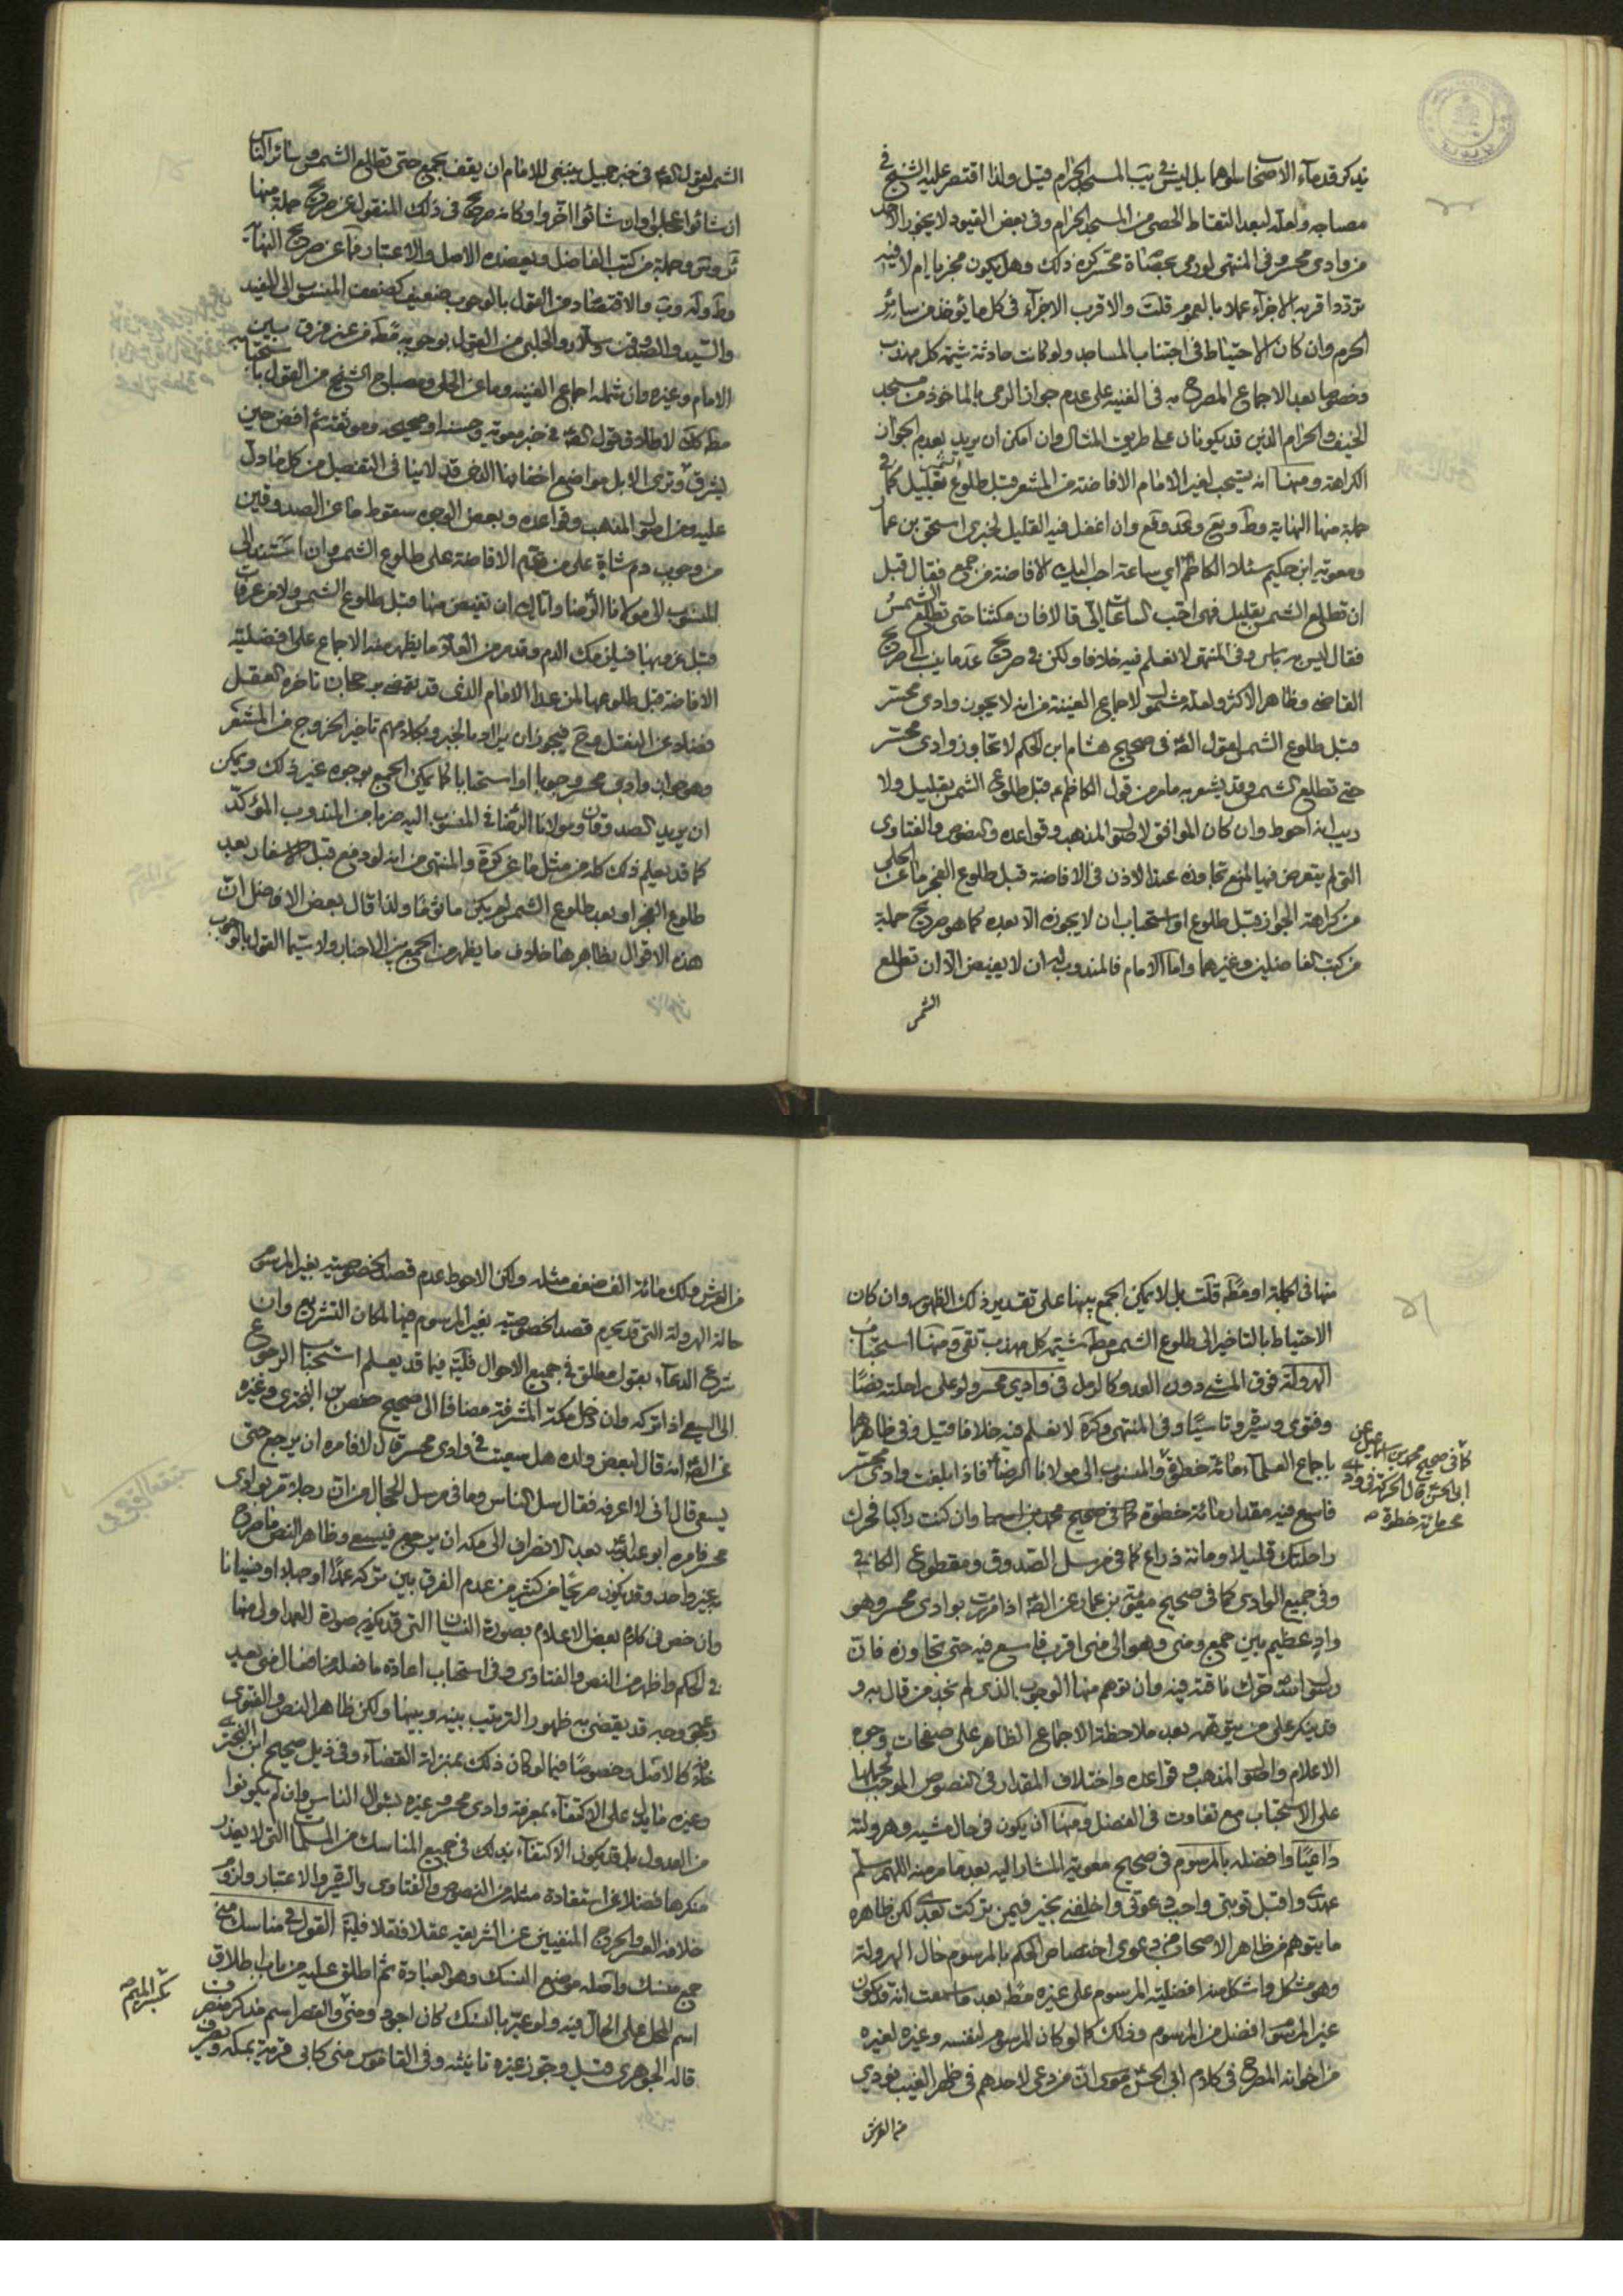 يذكر قدماء الاصحاب سواهما بل ليس في بيب المسجد الحرام قيل ولذا اقتصر عليه الشيخ في
مصباحه ولعله لبعد التقاط الحصى من المسجد الحرام وفي بعض القيود لا يجوز الاخذ
من وادي محسر وفي المنتهى لو رمى بحصاة محسر كره ذلك وهل يكون مجزيا ام لا فيه
تردد اقربه الاجزاء عملا بالعموم قلت والاقرب الاجزاء في كل ما يؤخذ من سائر
الحرم وان كان الاحتياط في اجتناب المساجد ولو كانت حادثة شيمة كل مهذب
وخصوصا بعد الاجماع المصرح به في الغنية على عدم جواز الرمي بالماخوذ من مسجد
الخيف والحرام الذين قد يكونان على طريق المثال وان امكن ان يريد بعدم الجواز
الكراهة ومنها انه يستحب لغير الامام الافاضة من المشعر قبل طلوع الشمس بقليل كما في
جملة منها النهاية وط و يع و عد و فع وان اغفل فيه القليل لخبري اسحق بن عمار
ومعوية ابن حكيم سئلا الكاظم اي ساعة احب اليك الافاضة من جمع فقال قبل
ان تطلع الشمس بقليل فهي احب الساعات الي قالا فان مكثنا حتى تطلع الشمس
فقال ليس به باس وفي المنتهى لا نعلم فيه خلافا ولكن في صريح عد ما ينسب الى صريح
القاضي وظاهر الاكثر ولعله مشمول لاجماع الغنية من انه لا يجوز وادي محسر
قبل طلوع الشمس لقول الصّ في صحيح هشام ابن الحكم لا تجاوز وادي محسر
حتى تطلع الشمس وقد يشعر به ما مر من قول الكاظم ع قبل طلوع الشمس بقليل ولا
ريب انه احوط وان كان الموافق لاصول المذهب وقواعده والنصوص والفتاوى
التي لم يتعرض فيها للمنع تجاوزه عند الاذن في الافاضة قبل طلوع الفجر ما عن الحلي
من كراهة الجواز قبل طلوع او استحباب ان لا يجوزه الا بعده كما هو صريح جملة
من كتب الفاضلين وغيرهما واما الامام فالمندوب له ان لا يفيض الا ان تطلع
الشمس
الشمس لقول الصّ في خبر جميل ينبغي للامام ان يقف بجمع حتى تطلع الشمس وسائر الناس
ان شاؤا عجلوا وان شائوا اخروا وكانه صريح في ذلك المنقول عن صريح جملة منها
ئر و ئق وجملة من كتب الفاضل ويعضده الاصل والاعتبار فما عن صريح النهاية
وط و له و ب والاقتصاد من القول بالوجوب ضعيف كضعف المنسوب الى المفيد
والسيد والصدوقين وسلار والحلبي من القول بوجوبه مط من غير فرق بين
الامام وغيره وان شمله اجماع الغنية وما عن الحلي ومصباح الشيخ من القول باستحبابه
مط كك لاطلاق قول الصّ في خبر معوية وحسنه او صحيحه وموثقه ثم افض حين
يشرق وترى الابل مواضع اخفافها الذي قد لا ينافي التفصيل من كل ما دل
عليه من اصول المذهب وقواعده وبعض الوجوه سقوط ما عن الصدوقين
من وجوب دم شاة على من قدم الافاضة على طلوع الشمس وان استند الى
المنسوب الى مولانا الرضا واياك ان تفيض منها قبل طلوع الشمس ولا من عرفات
قبل غروبها فيلزمك الدم وقد مر من العلامة ما يظهر منه الاجماع على افضلية
الافاضة قبل طلوعها لمن عدا الامام الذي قد يقضي برجحان تاخره العقل
فضلا عن النقل وح فيجوز ان يراد بالخبر وبكلامهم تاخير الخروج من المشعر
وهو جواز وادي محسر وجوبا او استحبابا كما يمكن الجمع بوجوه غير ذلك ويمكن
ان يريد الصدوقان ومولانا الرضا في المنسوب اليه ضربا من المندوب المؤكد
كما قد يعلم ذلك كله من مثل ما عن كرة والمنتهى من انه لو دفع قبل الاسفار بعد
طلوع الفجر او بعد طلوع الشمس لم يكن ماثوما ولذا قال بعض الافاضل ان
هذه الاقوال بظاهرها خلاف ما يظهر من الجمع بين الاخبار ولا سيما القول بالوجوب
منها في الجملة او مط قلت بل لا يمكن الجمع بينها على تقدير ذلك الظهور وان كان
الاحتياط بالتاخير الى طلوع الشمس مط شيمة كل مهذب تقي ومنها استحباب
الهرولة فوق المشي دون العدو كالرمل في وادي محسر ولو على راحلته نصا
وفتوى وسيرة وتاسيا وفي المنتهى وكرة لا نعلم فيه خلافا قيل وفي ظاهرهما
باجماع العلماء مائة خطوة والمنسوب الى مولانا الرضا فاذا بلغت وادي محسر
فاسع فيه مقدار مائة خطوة كما في صحيح محمد بن اسمعيل وان كنت راكبا فحرك
راحلتك قليلا ومائة ذراع كما في مرسل الصدوق ومقطوع الكافي
وفي جميع الوادي كما في صحيح معوية بن عمار عن الصّ اذا مررت بوادي محسر وهو
واد عظيم بين جمع ومنى وهو الى منى اقرب فاسع فيه حتى تجاوزه فان
رسول الله حرك ناقته فيه وان توهم منها الوجوب الذي لم نجد من قال به و
قد ينكر على من يتوهمه بعد ملاحظة الاجماع الظاهر على صفحات وجوه
الاعلام واصول المذهب وقواعده واختلاف المقدار في النصوص الموجب لحملها
على الاستحباب مع تفاوت في الفضل ومنها ان يكون في حال مشيه وهرولته
داعيا وافضله بالمرسوم في صحيح معوية المشار اليه بعد ما مر منه اللهم سلم
عهدي واقبل توبتي واجب دعوتي واخلفني بخير فيمن تركت بعدي لكن ظاهره
ما يتوهم من ظاهر الاصحاب من دعوى اختصاص الحكم بالمرسوم حال الهرولة
وهو مشكل واشكل منه افضلية المرسوم على غيره مط بعد ما سمعت انه قد يكون
غير المرسوم افضل من المرسوم وذلك كما لو كان المرسوم لنفسه وغيره لغيره
من اخوانه المصرح في كلام ابي الحسن موسى ان من دعى لاحدهم في ظهر الغيب نودي
من العرش
كما في صحيح محمد بن اسماعيل عن
ابي الحسن قال الحركة في وادي
محسر مائة خطوة صح
من العرش ولك مائة الف ضعف مثله ولكن الاحوط عدم قصد الخصوصية بغير المرسوم
حالة الهرولة التي قد يحرم قصد الخصوصية بغير المرسوم فيها لمكان التشريع وان
شرع الدعاء بقول مطلق في جميع الاحوال فليتأمل فيما قد يعلم استحباب الرجوع
الى السعي اذا تركه وان دخل مكة المشرفة مضافا الى صحيح حفص بن البختري وغيره
عن الصّ انه قال لبعض ولده هل سعيت في وادي محسر قال لا فامره ان يرجع حتى
يسعى قال اني لا اعرفه فقال سل الناس وما في مرسل الحجال من ان رجلا مر بوادي
محسر فامره ابو عبدالله بعد الانصراف الى مكة ان يرجع فيسعى وظاهر النص ما صرح
به غير واحد وقد يكون صريحا من كثير من عدم الفرق بين تركه عمدا او جهلا او نسيانا
وان خص في كلام بعض الاعلام بصورة النسيان التي قد يكون صورة العمد اولى منها
في الحكم واظهر من النص والفتاوى وفي استحباب اعادة ما فعله من افعال منى بعيد
وجه قد يقضي به ظهور الترتيب بينه وبينها ولكن ظاهر النص والفتوى
كالاصل وخصوصا فيما لو كان ذلك بمنزلة القضاء وفي ذيل صحيح ابن البختري
وغيره ما يدل على الاكتفاء بمعرفة وادي محسر وغيره بسؤال الناس وان لم يكونوا
من العدول بل قد يكون الاكتفاء بذلك في جميع المناسك من المسلمات التي لا يعذر
منكرها فضلا عن استفادة مثله من النصوص والفتاوى والسيرة والاعتبار ولزوم
خلافه العسر والحرج المنفيين عن الشريعة عقلا ونقلا فليتأمل القول في مناسك منى
جمع منسك واصله موضع النسك وهو العبادة ثم اطلق عليه من باب اطلاق
اسم المحل على الحال فيه ولو عبر بالنسك كان اجود ومنى والقصر اسم مذكر منصرف
قاله الجوهري قيل وجوز غيره تانيثه وفي القاموس منى كالى قرية بمكة ويصرف
بكسر الميم صح